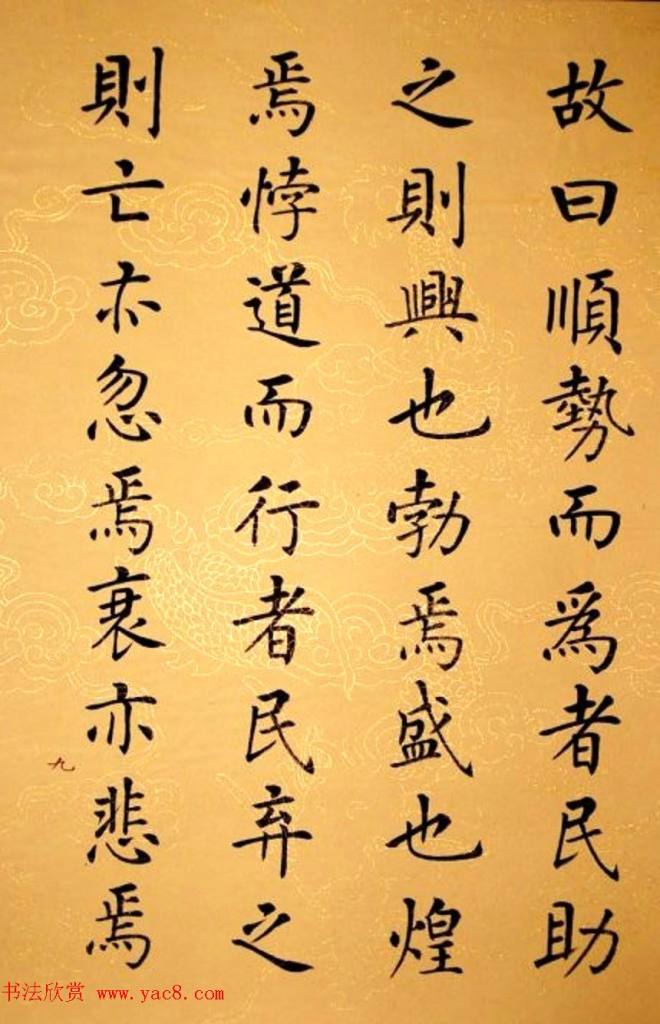 故曰順勢而爲者民助
之則興也勃焉盛也煌
焉悖道而行者民弃之
則亡亦忽焉衰亦悲焉
九
书法欣赏 www.yac8.com